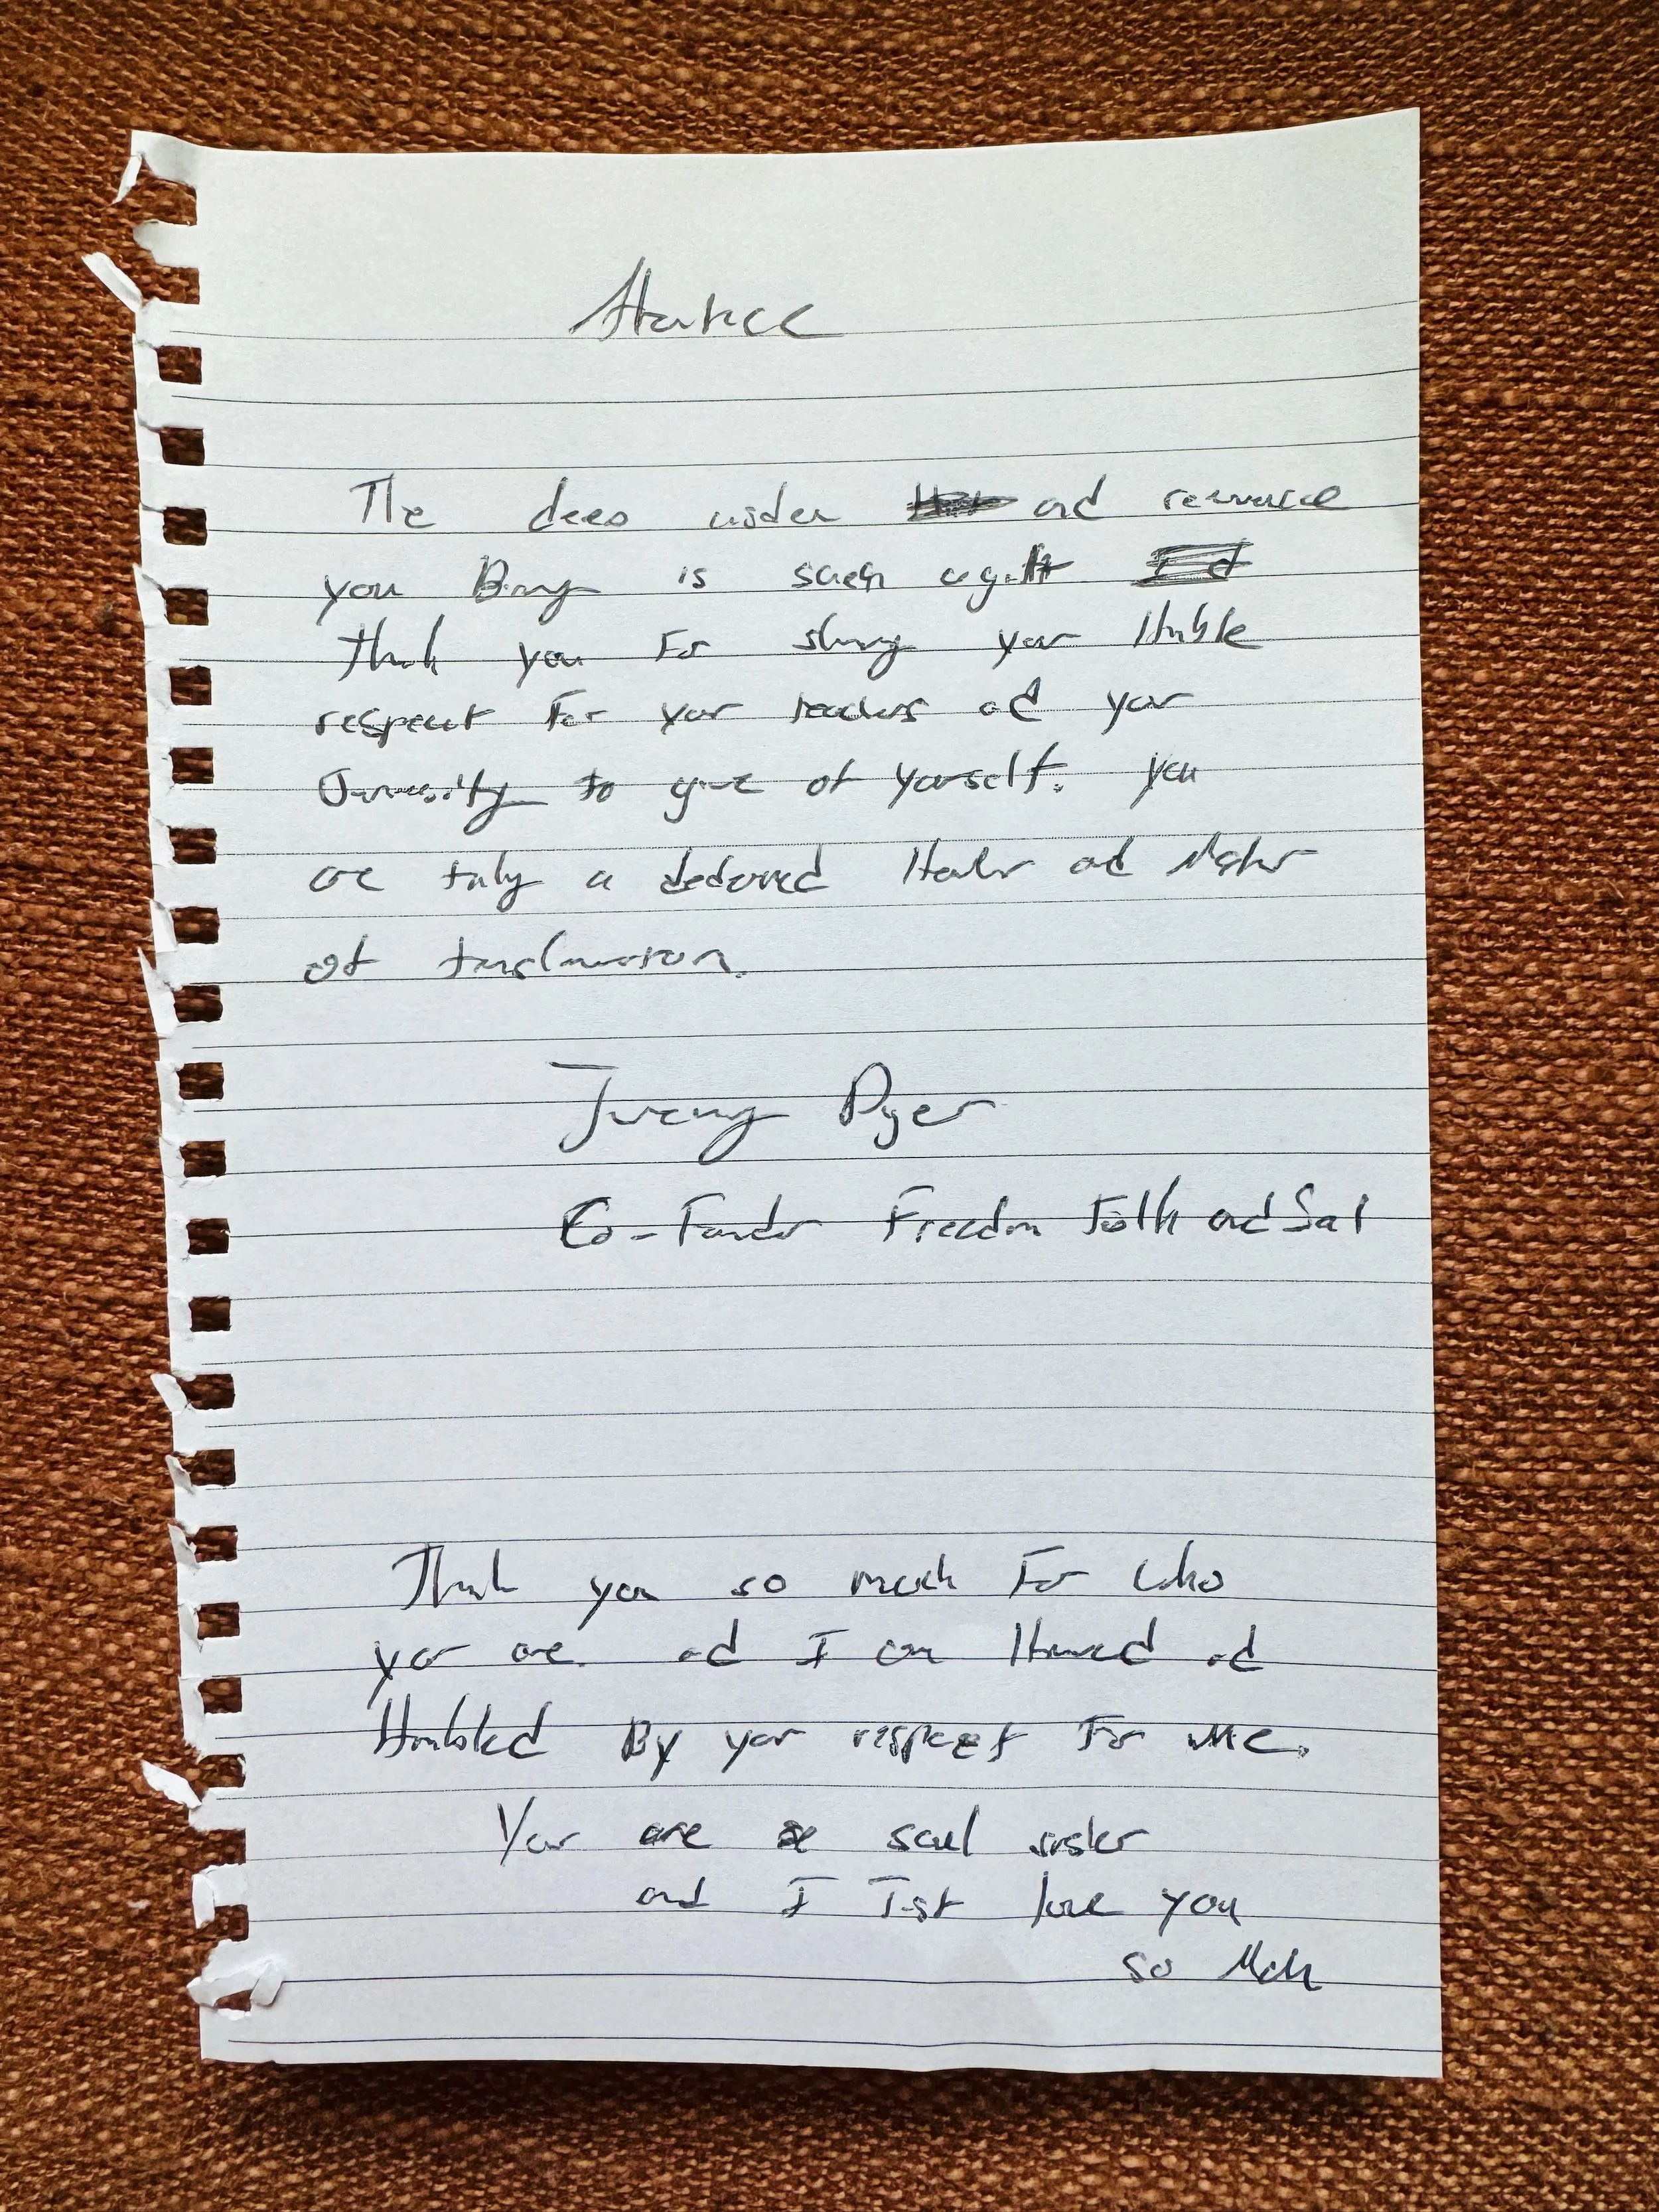 The deep wisdom and resonance
you Bring is such a gift
Thank you For sharing your Humble
respect For your teachers and your
Generosity to give of yourself. you
are truly a devoted Healer and Master
of transformation.
Jeremy Dyer
Co-Founder Freedom Folk and Soul
Thank you so much For who
you are. and I am Honored and
Humbled By your respect For me.
You are a soul sister
and I Just love you
so Much